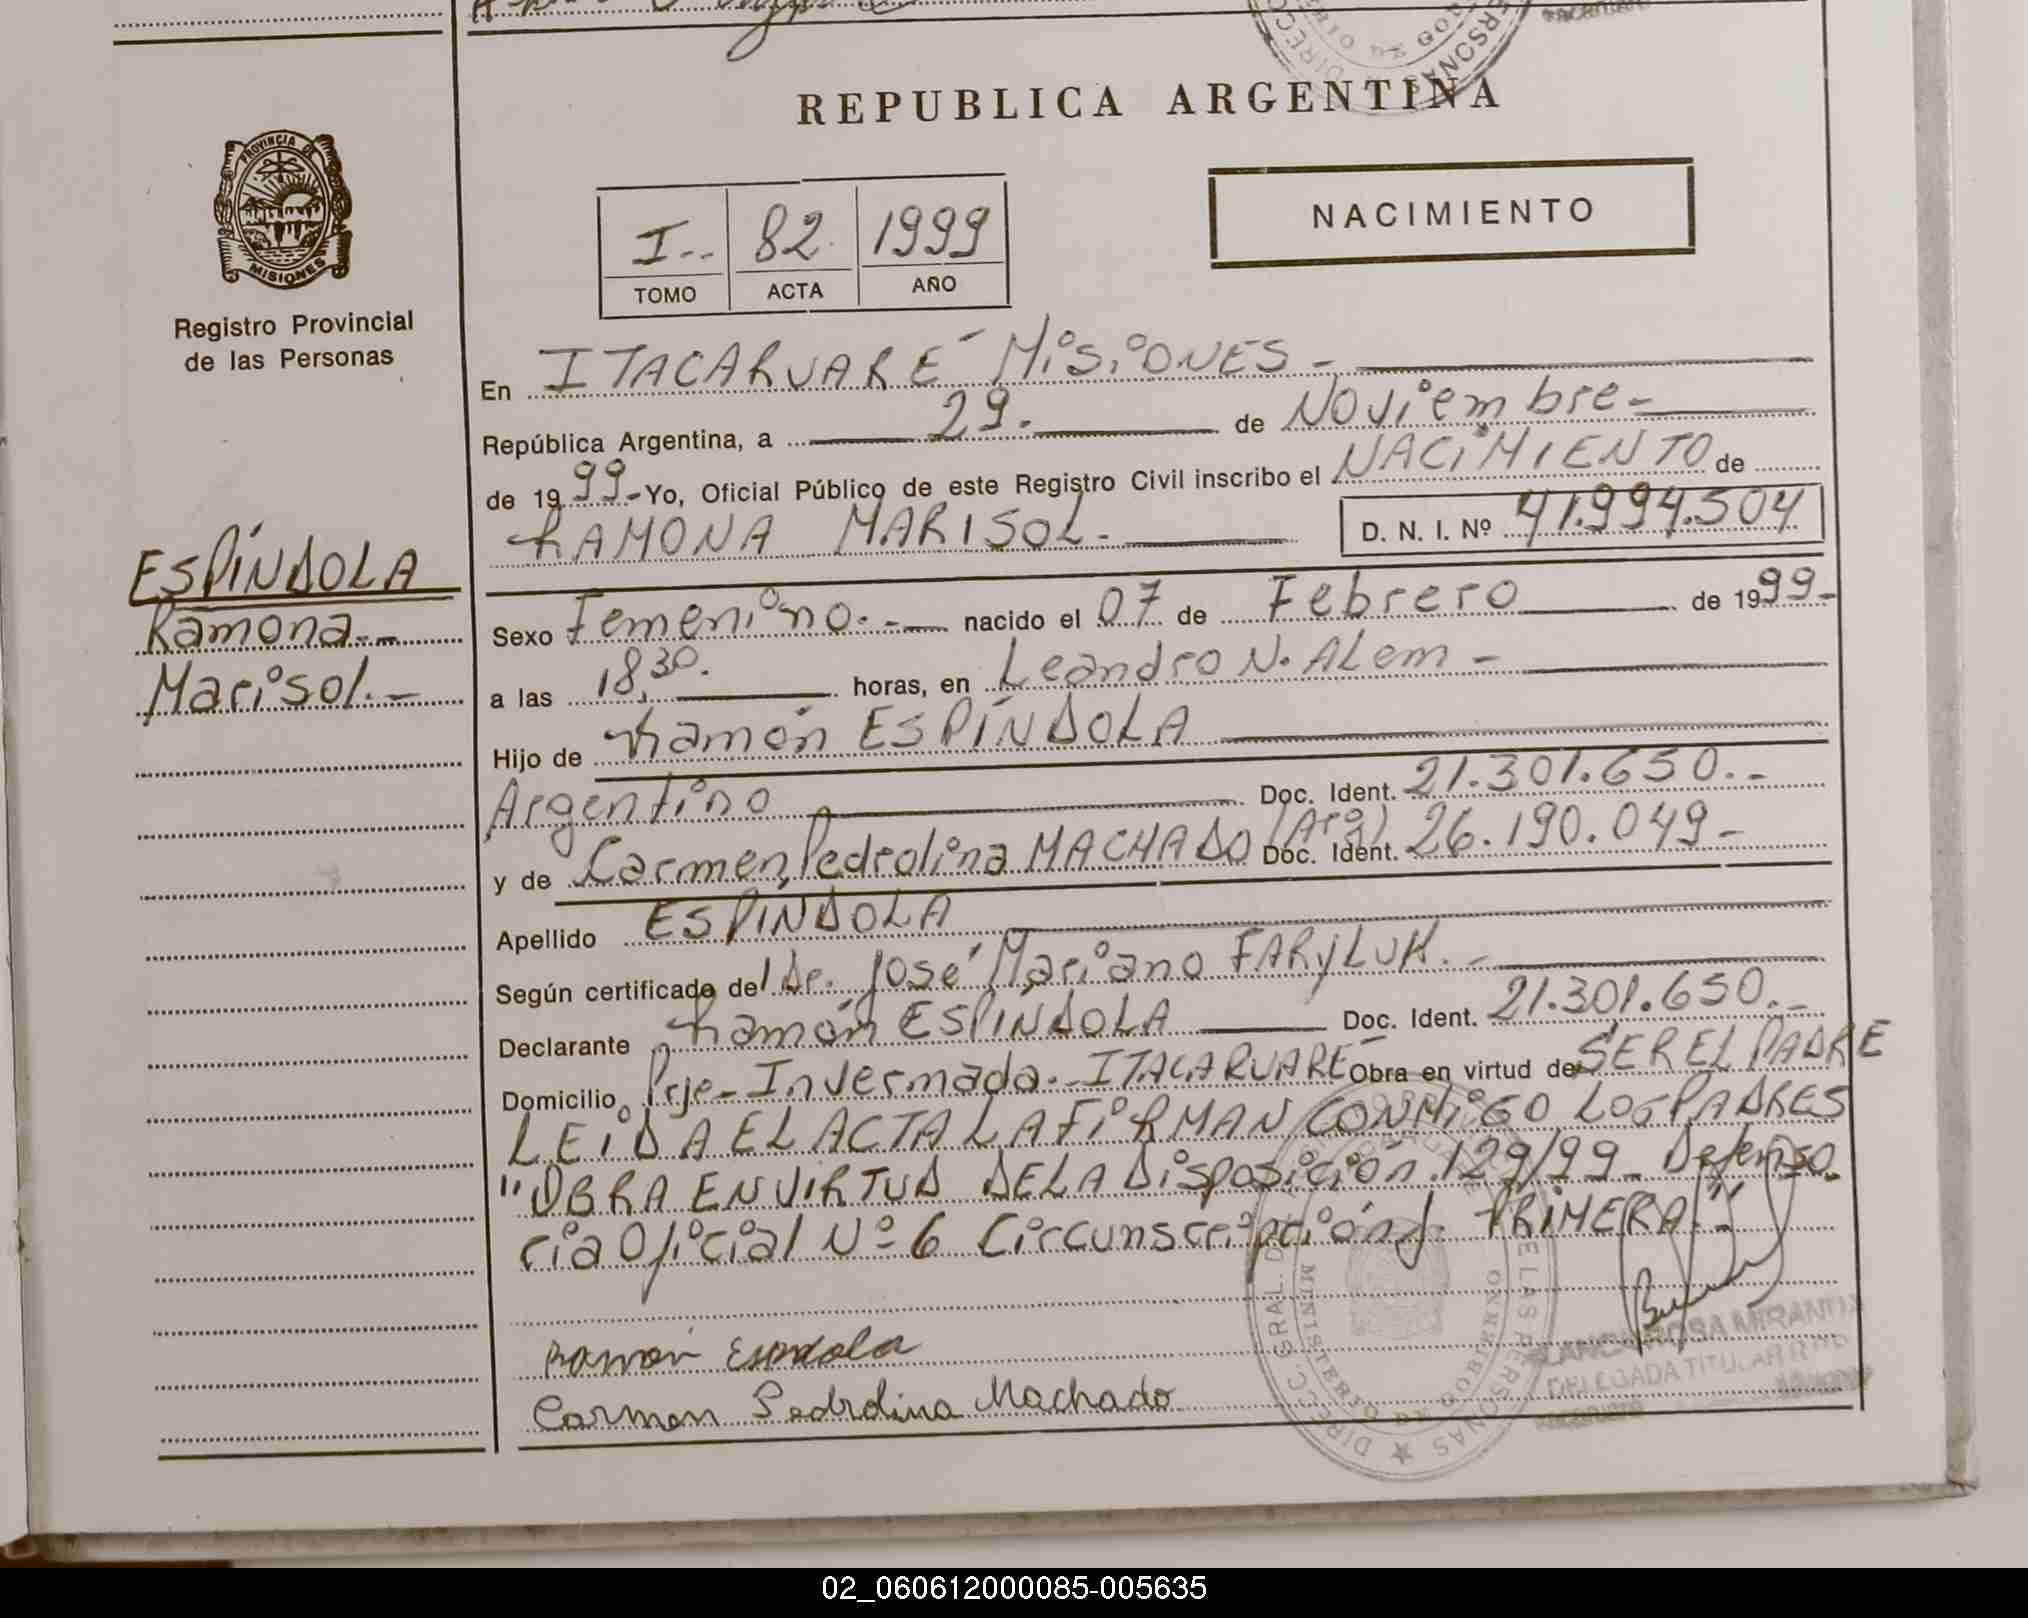 REPUBLICA ARGENTINA
PROVINCIA DE
MISIONES
Registro Provincial
de las Personas
NACIMIENTO
I.. 82. 1999
TOMO ACTA AÑO
En ITACARUARÉ MiSiONES -
República Argentina, a 29. de Noviembre-
de 1999-Yo, Oficial Público de este Registro Civil inscribo el NACiMIENTO de
RAMONA MARISOL- D. N. I. Nº 41.994.504
ESPÍNDOLA
Ramona.-
Marisol.-
Sexo Femenino.- nacido el 07 de Febrero de 1999-
a las 18,30. horas, en Leandro N. ALem -
Hijo de Ramón ESPÍNDOLA
Argentino Doc. Ident. 21.301.650.-
y de Carmen Pedrolina MACHADO (Arg) Doc. Ident. 26.190.049-
Apellido ESPINDOLA
Según certificado del Dr. José Mariano FARYLUK.-
Declarante Ramón ESPÍNDOLA Doc. Ident. 21.301.650.-
Domicilio Prje- Invernada.-ITACARUARÉ Obra en virtud de SER EL PADRE
LEiDA EL ACTA LA FiRMAN CONMiGO LOS PADRES
"OBRA EN VIRTUD DE LA Disposición 129/99- Defenso
ria Oficial Nº 6 Circunscripción PRiMERA"
Ramón Espindola
Carmen Pedrolina Machado
ROSA MIRANTE
DELEGADA TITULAR
DIRECC. GRAL. DE LAS PERSONAS
MINISTERIO DE GOBIERNO
02_060612000085-005635